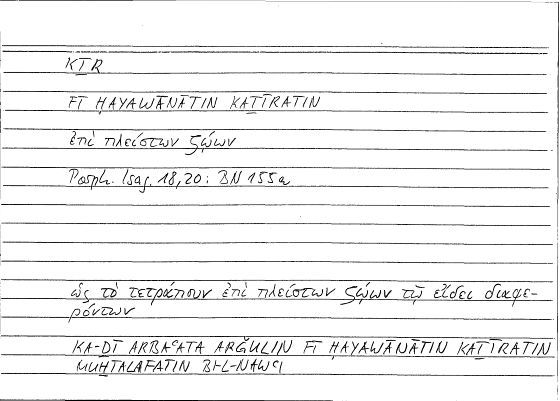 KṮR
FĪ ḤAYAWĀNĀTIN KAṮĪRATIN
ἐπὶ πλείστων ζῴων
Porph. Isag. 18,20: BN 155a
ὡς τὸ τετράπουν ἐπὶ πλείστων ζῴων τῷ εἴδει διαφε-
ρόντων
KA-ḎĪ ARBAʿATA ARǦULIN FĪ ḤAYAWĀNĀTIN KAṮĪRATIN
MUḪTALAFATIN BI-L-NAWʿI